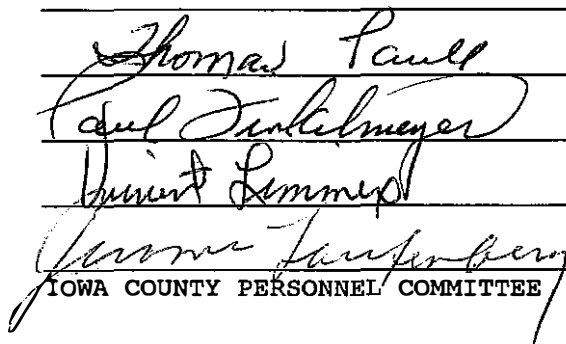 Thomas Paull
Paul Finkelmeyer
Vincent Limmex
Jerome Laufenberg
IOWA COUNTY PERSONNEL COMMITTEE